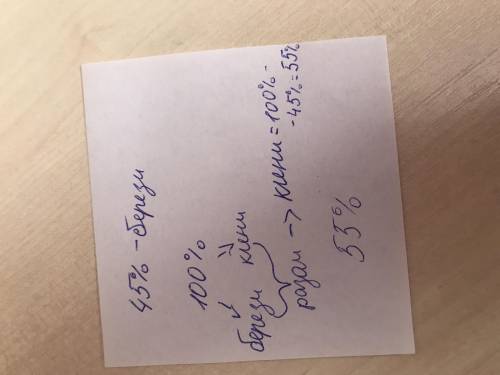 45% - берези
100%
берези клени
разом -> клени = 100% -
- 45% = 55%
55%